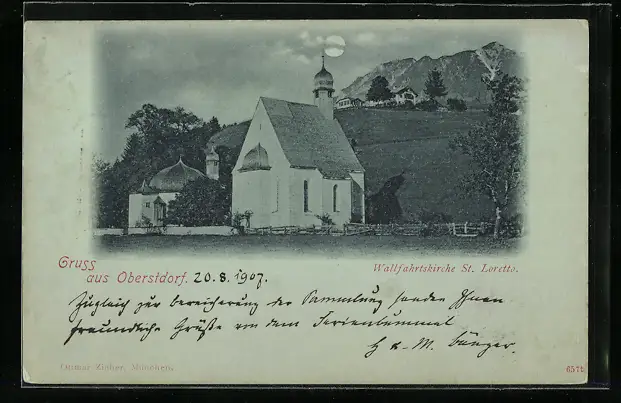 Gruss
aus Oberstdorf. 20.8.1907.
Wallfahrtskirche St. Loretto.
Zugleich zur bereicherung der Sammlung senden Ihnen
freundliche Grüße von dem Ferienbummel
H. u. M. Bünger.
Ottmar Zieher, München.
657